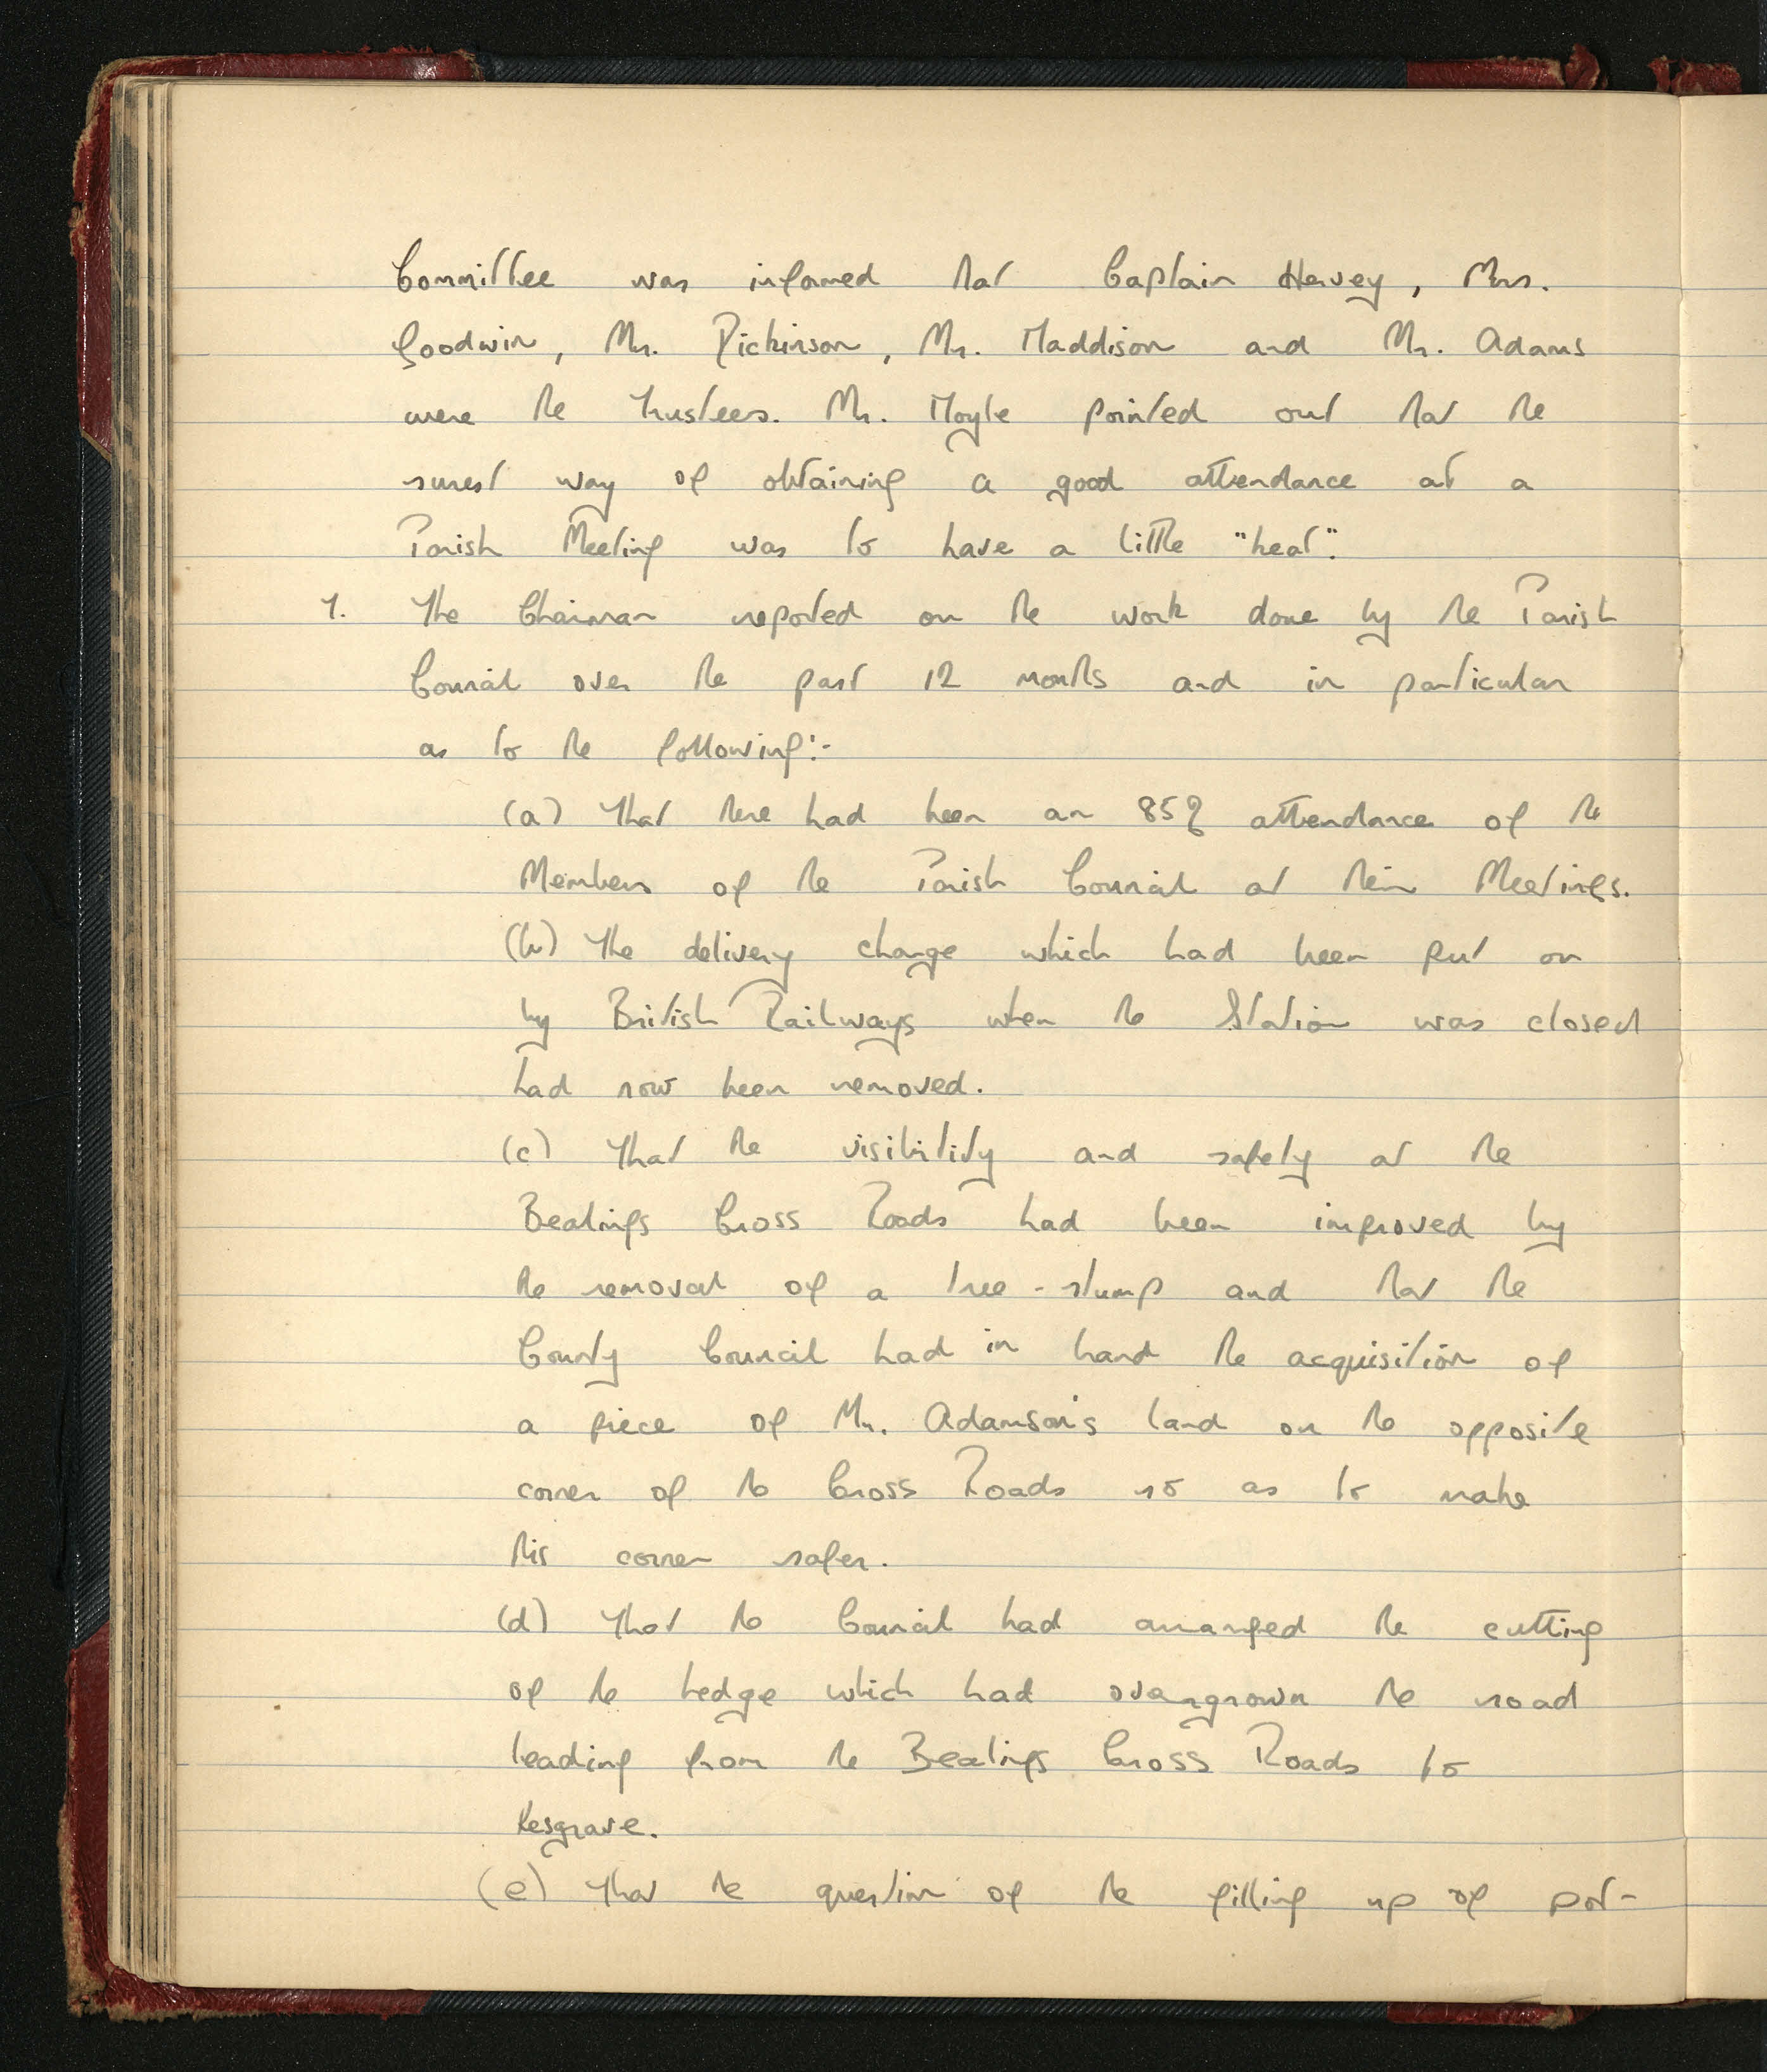 Committee was informed that Captain Hervey, Mrs.
Goodwin, Mr. Dickinson, Mr. Maddison and Mr. Adams
were the trustees. Mr. Moyle pointed out that the
surest way of obtaining a good attendance at a
Parish Meeting was to have a little "heat".
7. The Chairman reported on the work done by the Parish
Council over the past 12 months and in particular
as to the following:-
(a) That there had been an 85% attendance of the
Members of the Parish Council at their Meetings.
(b) The delivery charge which had been put on
by British Railways when the Station was closed
had now been removed.
(c) That the visibility and safety at the
Bealings Cross Roads had been improved by
the removal of a tree-stump and that the
County Council had in hand the acquisition of
a piece of Mr. Adamson's land on the opposite
corner of the Cross Roads so as to make
this corner safer.
(d) That the Council had arranged the cutting
of the hedge which had overgrown the road
leading from the Bealings Cross Roads to
Kesgrave.
(e) That the question of the filling up of pot-